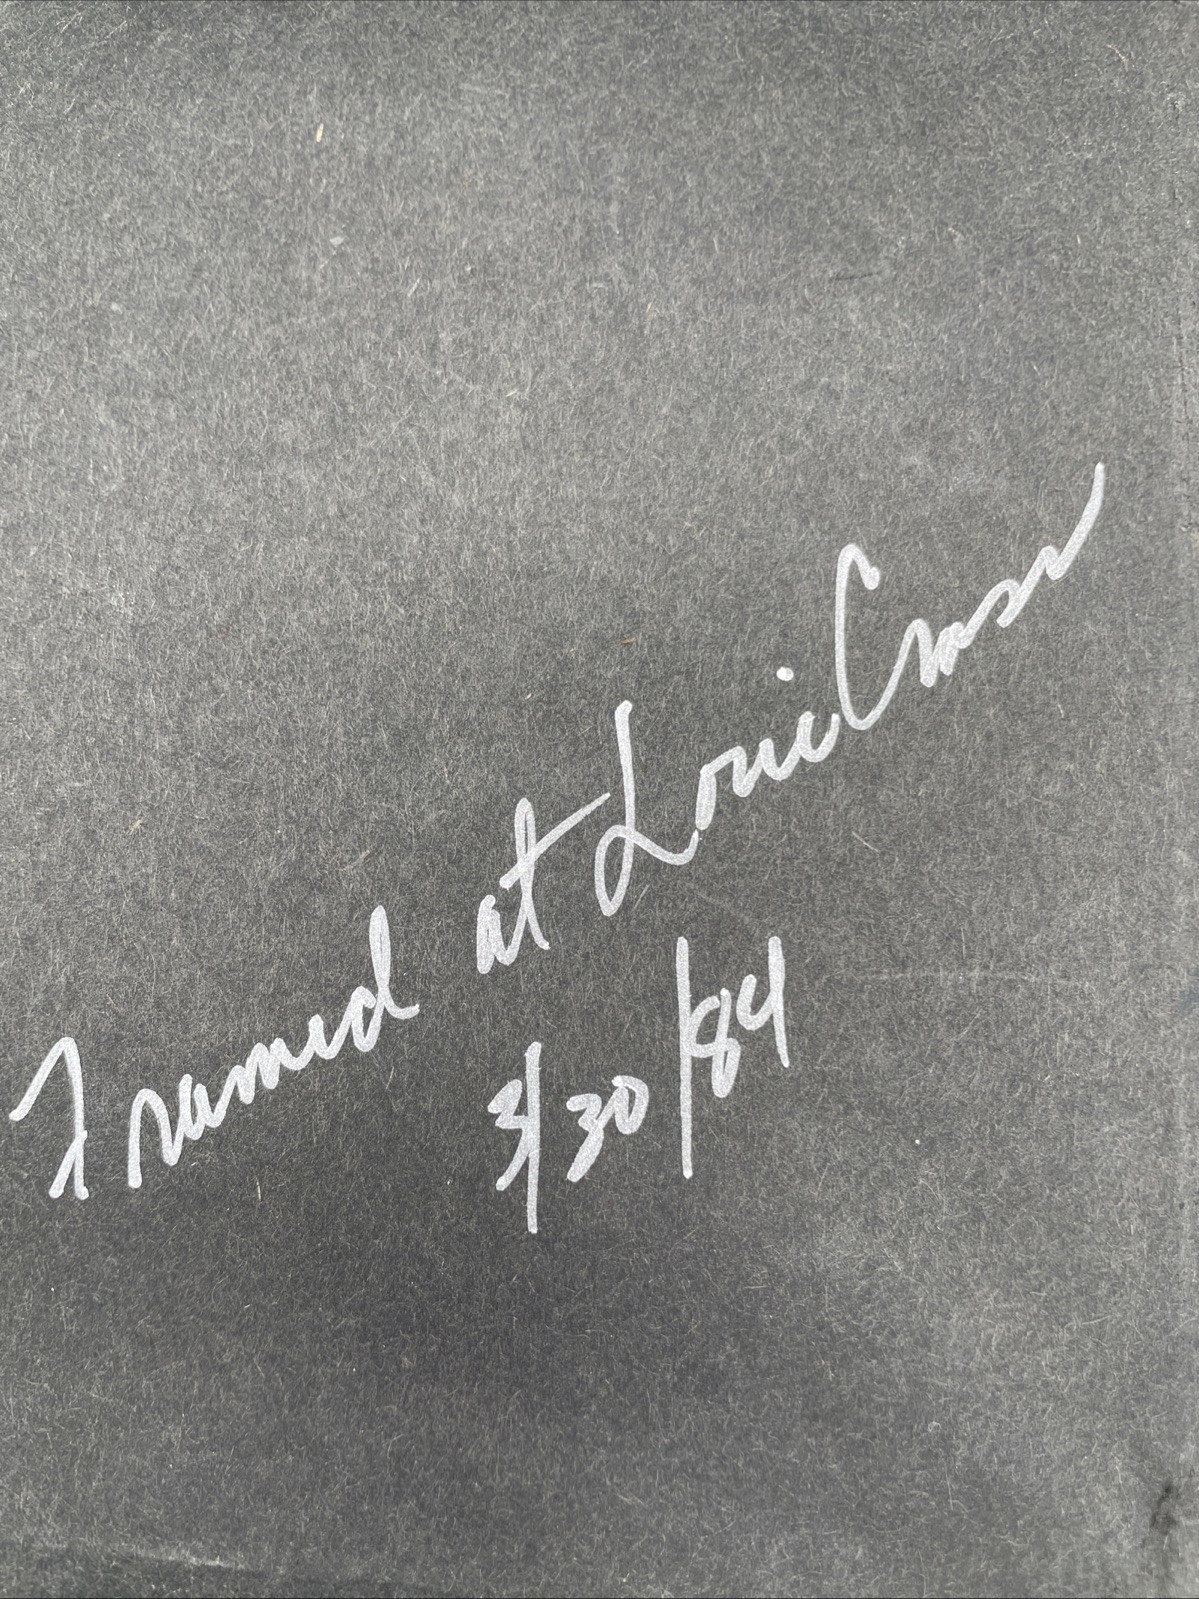 Framed at Louie
3/30/84